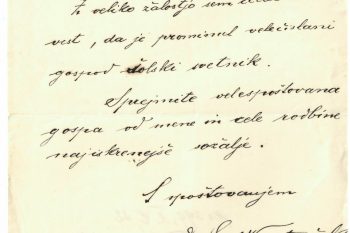 Z veliko žalostjo sem
vest, da je preminul velečislani
gospod šolski svetnik.
Sprejmite velespoštovana
gospa od mene in cele rodbine
najiskrenejše sožalje.
S spoštovanjem